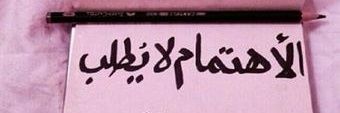 الأهتمام لا يُطلب